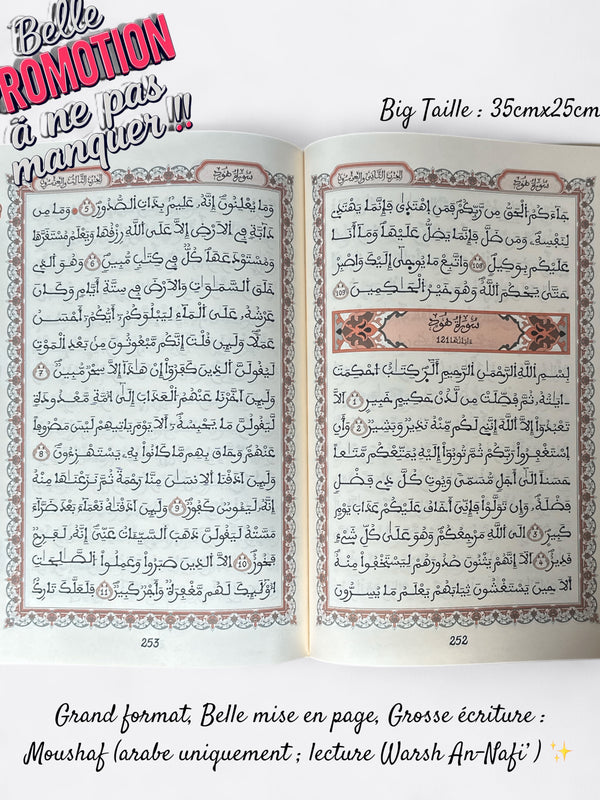 Belle
PROMOTION
à ne pas
manquer !!!
Big Taille : 35cmx25cm
سورة هود
الحزب الثاني والعشرون
جَآءَكُمُ الْحَقُّ مِن رَّبِّكُمْ فَمَنِ اهْتَدٜىٰ فَإِنَّمَا يَهْتَدِے
لِنَفْسِهِۦ وَمَن ضَلَّ فَإِنَّمَا يَضِلُّ عَلَيْهَا وَمَآ أَنَا
عَلَيْكُم بِوَكِيلٍ 108 وَاتَّبِعْ مَا يُوحٜىٰ إِلَيْكَ وَاصْبِرْ
حَتَّىٰ يَحْكُمَ اللَّهُ وَهُوَ خَيْرُ الْحَاكِمِينَ 109
سورة هود
ءاياتها 121
بِسْمِ اللَّهِ الرَّحْمَٰنِ الرَّحِيمِ أَلٓر كِتَابٌ احْكِمَتَ
ايَاتُهُۥ ثُمَّ فُصِّلَتْ مِن لَّدُنْ حَكِيمٍ خَبِيرٍ 1 اَلَّا
تَعْبُدُوٓاْ إِلَّا اللَّهَ إِنَّنِي لَكُم مِّنْهُ نَذِيرٌ وَبَشِيرٌ 2 وَأَنِ
اسْتَغْفِرُواْ رَبَّكُمْ ثُمَّ تُوبُوٓاْ إِلَيْهِ يُمَتِّعْكُم مَّتَاعاً
حَسَناً اِلَىٰٓ أَجَلٍ مُّسَمّىً وَيُوتِ كُلَّ ذِے فَضْلٍ
فَضْلَهُۥ وَإِن تَوَلَّوْاْ فَإِنِّيَ أَخَافُ عَلَيْكُمْ عَذَابَ يَوْمٍ
كَبِيرٍ 3 اِلَى اللَّهِ مَرْجِعُكُمْ وَهُوَ عَلَىٰ كُلِّ شَےْءٍ
قَدِيرٌ 4 اَلَآ إِنَّهُمْ يَثْنُونَ صُدُورَهُمْ لِيَسْتَخْفُواْ مِنْهُ
أَلَا حِينَ يَسْتَغْشُونَ ثِيَابَهُمْ يَعْلَمُ مَا يُسِرُّونَ
252
سورة هود
الحزب الثالث والعشرون
وَمَا يُعْلِنُونَ إِنَّهُۥ عَلِيمٌ بِذَاتِ الصُّدُورِ 5 وَمَا مِن
دَآبَّةٍ فِے الْأَرْضِ إِلَّا عَلَى اللَّهِ رِزْقُهَا وَيَعْلَمُ مُسْتَقَرَّهَا
وَمُسْتَوْدَعَهَا كُلٌّ فِے كِتَابٍ مُّبِينٍ 6 وَهُوَ الَّذِے
خَلَقَ السَّمَاوَاتِ وَالْأَرْضَ فِے سِتَّةِ أَيَّامٍ وَكَانَ
عَرْشُهُۥ عَلَى الْمَآءِ لِيَبْلُوَكُمُۥٓ أَيُّكُمُۥٓ أَحْسَنُ
عَمَلاً وَلَئِن قُلْتَ إِنَّكُم مَّبْعُوثُونَ مِنۢ بَعْدِ الْمَوْتِ
لَيَقُولَنَّ الَّذِينَ كَفَرُوٓاْ إِنْ هَٰذَآ إِلَّا سِحْرٌ مُّبِينٌ 7
وَلَئِنَ اَخَّرْنَا عَنْهُمُ الْعَذَابَ إِلَىٰٓ أُمَّةٍ مَّعْدُودَةٍ
لَّيَقُولُنَّ مَا يَحْبِسُهُۥٓ أَلَا يَوْمَ يَاتِيهِمْ لَيْسَ مَصْرُوفاً
عَنْهُمْ وَحَاقَ بِهِم مَّا كَانُواْ بِهِۦ يَسْتَهْزِءُونَ 8
وَلَئِنَ اَذَقْنَا الْإِنسَانَ مِنَّا رَحْمَةً ثُمَّ نَزَعْنَاهَا مِنْهُ
إِنَّهُۥ لَيَئُوسٌ كَفُورٌ 9 وَلَئِنَ اَذَقْنَاهُ نَعْمَآءَ بَعْدَ ضَرَّآءَ
مَسَّتْهُ لَيَقُولَنَّ ذَهَبَ السَّيِّئَاتُ عَنِّيَ إِنَّهُۥ لَفَرِحٌ
فَخُورٌ 10 اِلَّا الَّذِينَ صَبَرُواْ وَعَمِلُواْ الصَّالِحَاتِ
أُوْلَٰئِكَ لَهُم مَّغْفِرَةٌ وَأَجْرٌ كَبِيرٌ 11 فَلَعَلَّكَ تَارِكٌ
253
Grand format, Belle mise en page, Grosse écriture :
Moushaf (arabe uniquement ; lecture Warsh An-Nafi’ ) ✨